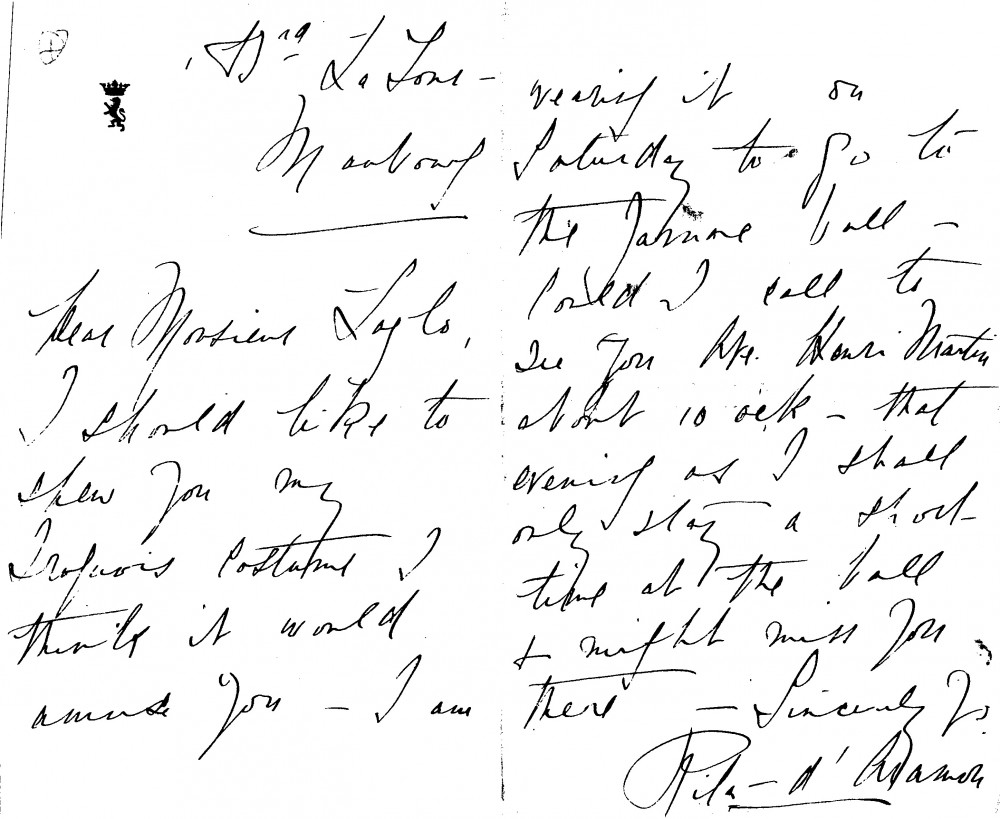 Bd La Tour-
Maubourg
Dear Monsieur Laglo,
I should like to
shew you my
Iroquois costume I
think it would
amuse you – I am
wearing it on
Saturday to go to
the ball –
Could I call to
see you Ave. Henri Martin
about 10 ock – that
evening as I shall
only stay a short
time at the ball
& might miss you
there – Sincerely Yrs.
Rita – d'Acosta